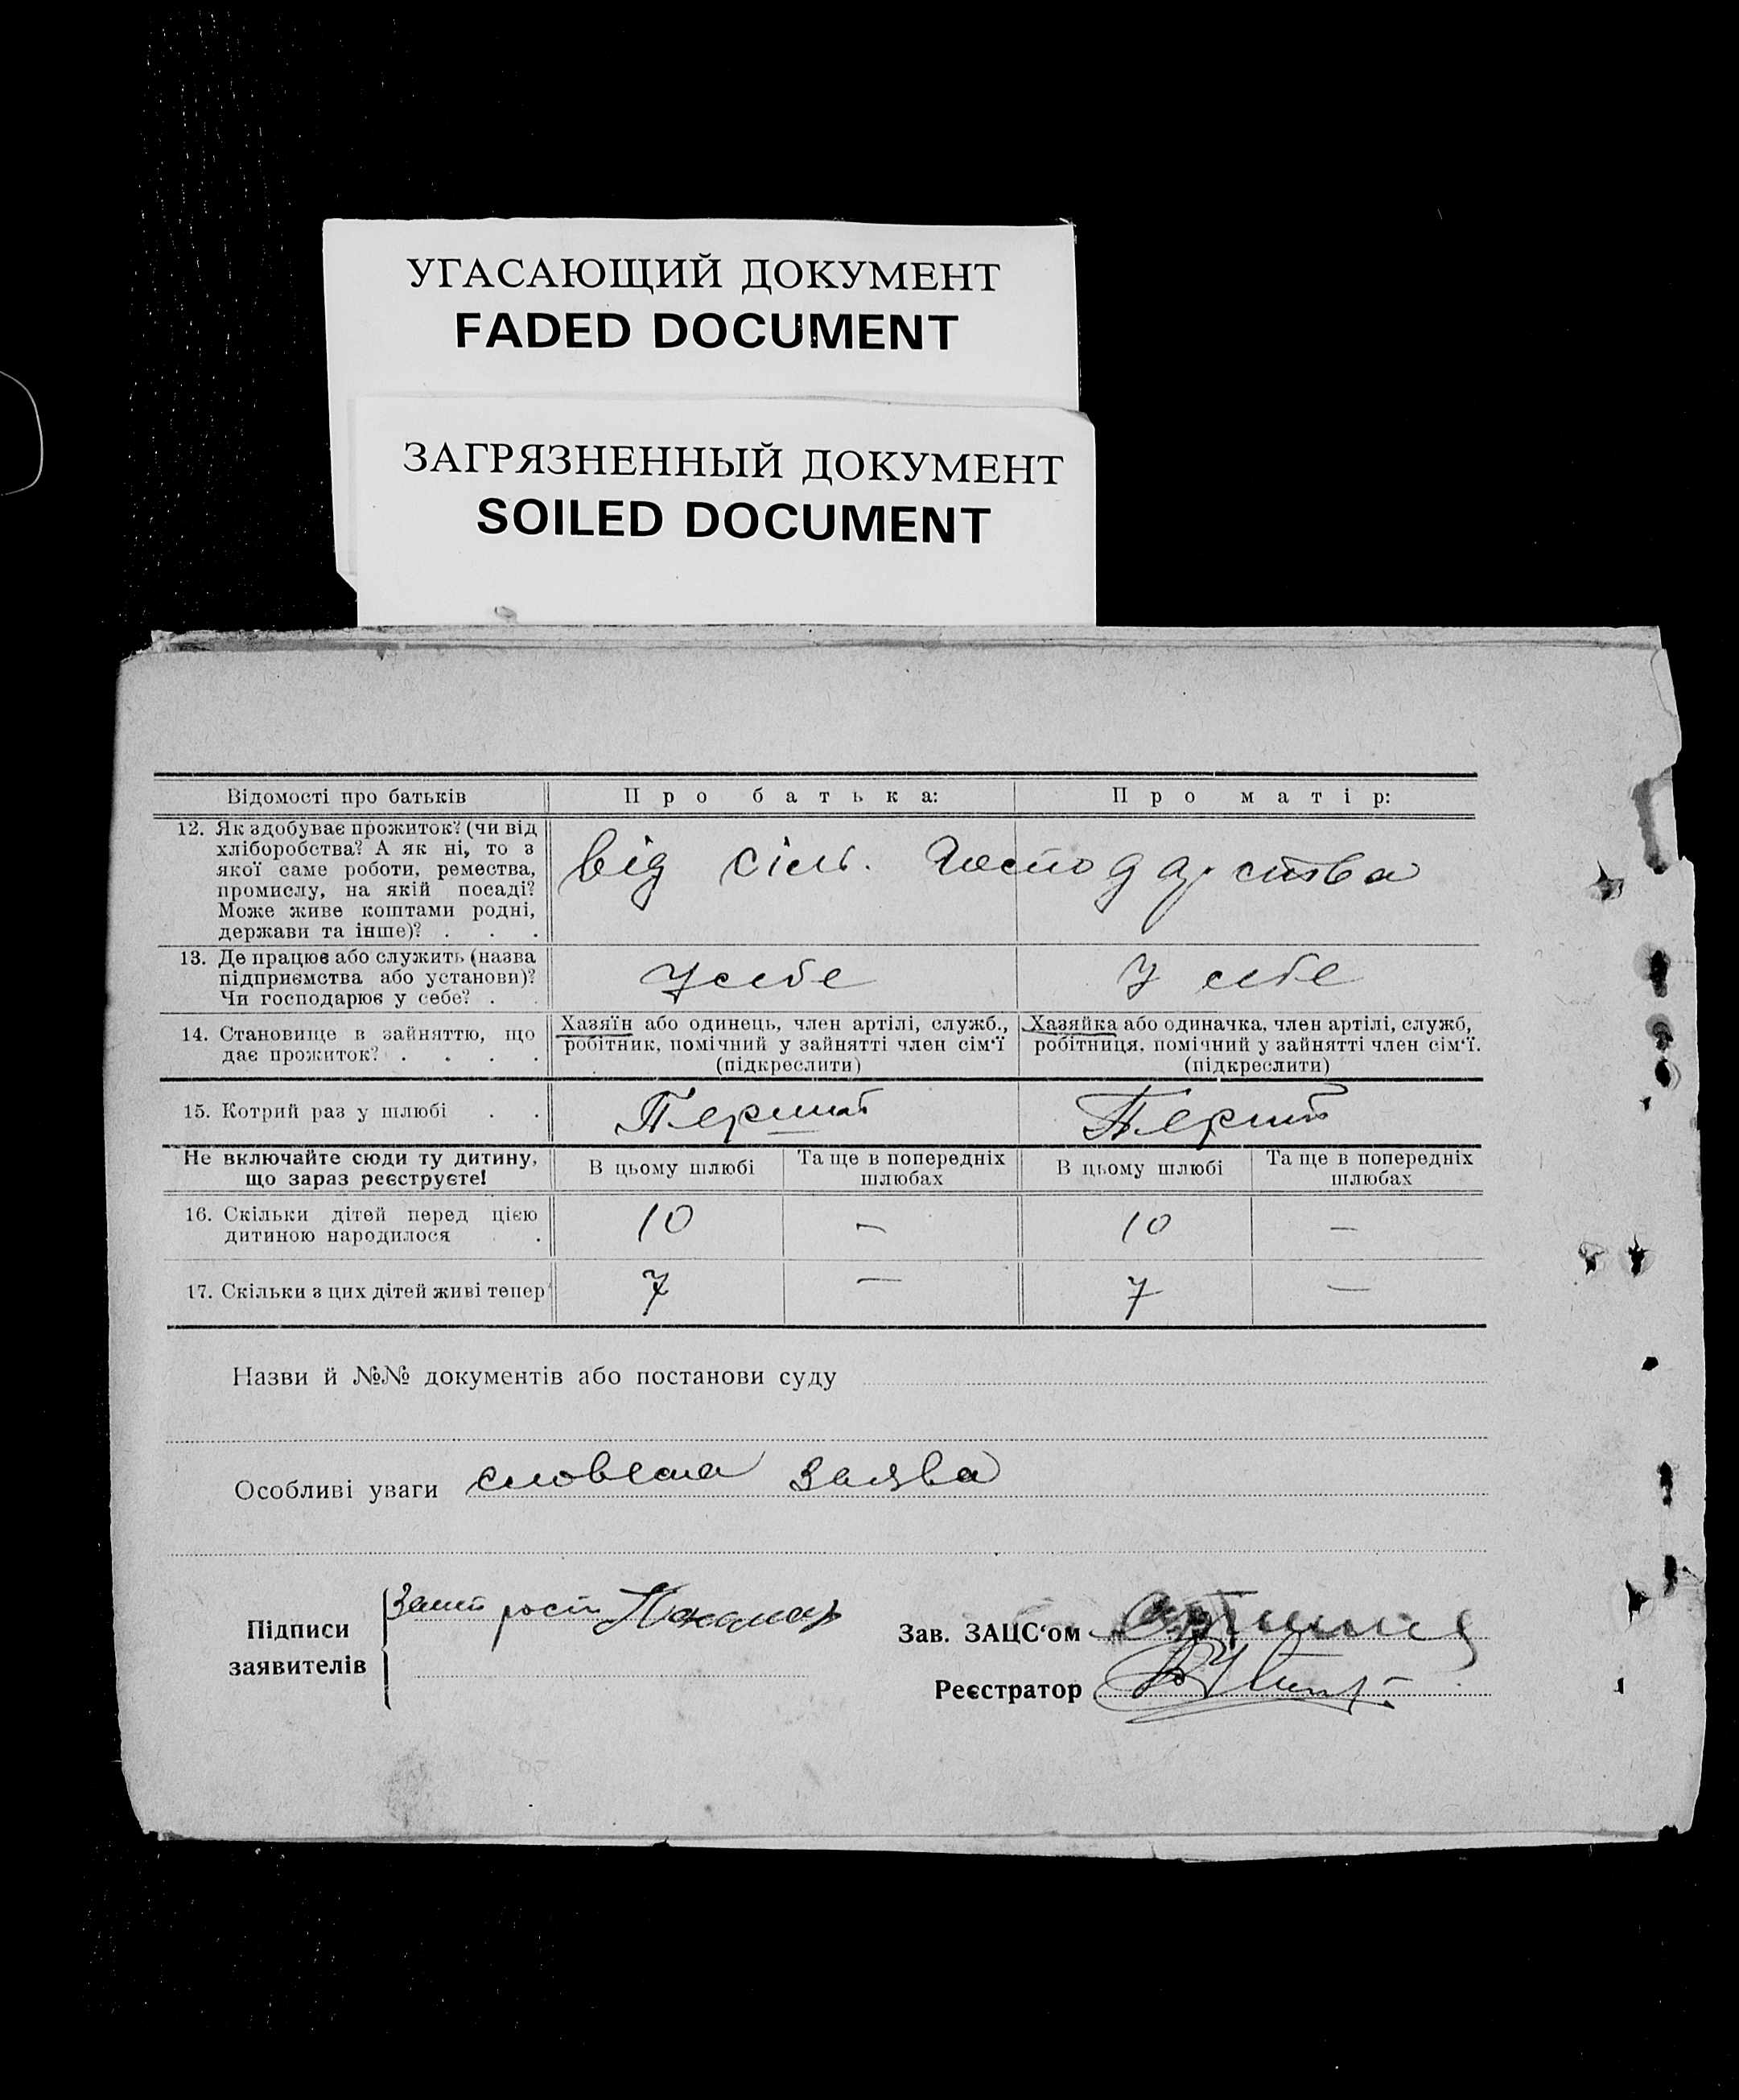 УГАСАЮЩИЙ ДОКУМЕНТ
FADED DOCUMENT
ЗАГРЯЗНЕННЫЙ ДОКУМЕНТ
SOILED DOCUMENT
Відомості про батьків Про батька: Про матір:
12. Як здобуває прожиток? (чи від
хліборобства? А як ні, то з
якої саме роботи, ремества,
промислу, на якій посаді?
Може живе коштами родні,
держави та інше)? . . .
від сіль. господарства
13. Де працює або служить (назва
підприємства або установи)?
Чи господарює у себе? .
У себе У себе
14. Становище в зайняттю, що
дає прожиток? . . . .
Хазяїн або одинець, член артілі, служб.,
робітник, помічний у зайнятті член сім‘ї
(підкреслити)
Хазяйка або одиначка, член артілі, служб,
робітниця, помічний у зайнятті член сім‘ї.
(підкреслити)
15. Котрий раз у шлюбі . . Перший Перший
Не включайте сюди ту дитину,
що зараз реєструєте!
В цьому шлюбі
Та ще в попередніх
шлюбах
В цьому шлюбі
Та ще в попередніх
шлюбах
16. Скільки дітей перед цією
дитиною народилося .
10 — 10 —
17. Скільки з цих дітей живі тепер 7 — 7 —
Назви й №№ документів або постанови суду
Особливі уваги словесна заява
Підписи
заявителів
Зав. ЗАЦС‘ом
Реєстратор